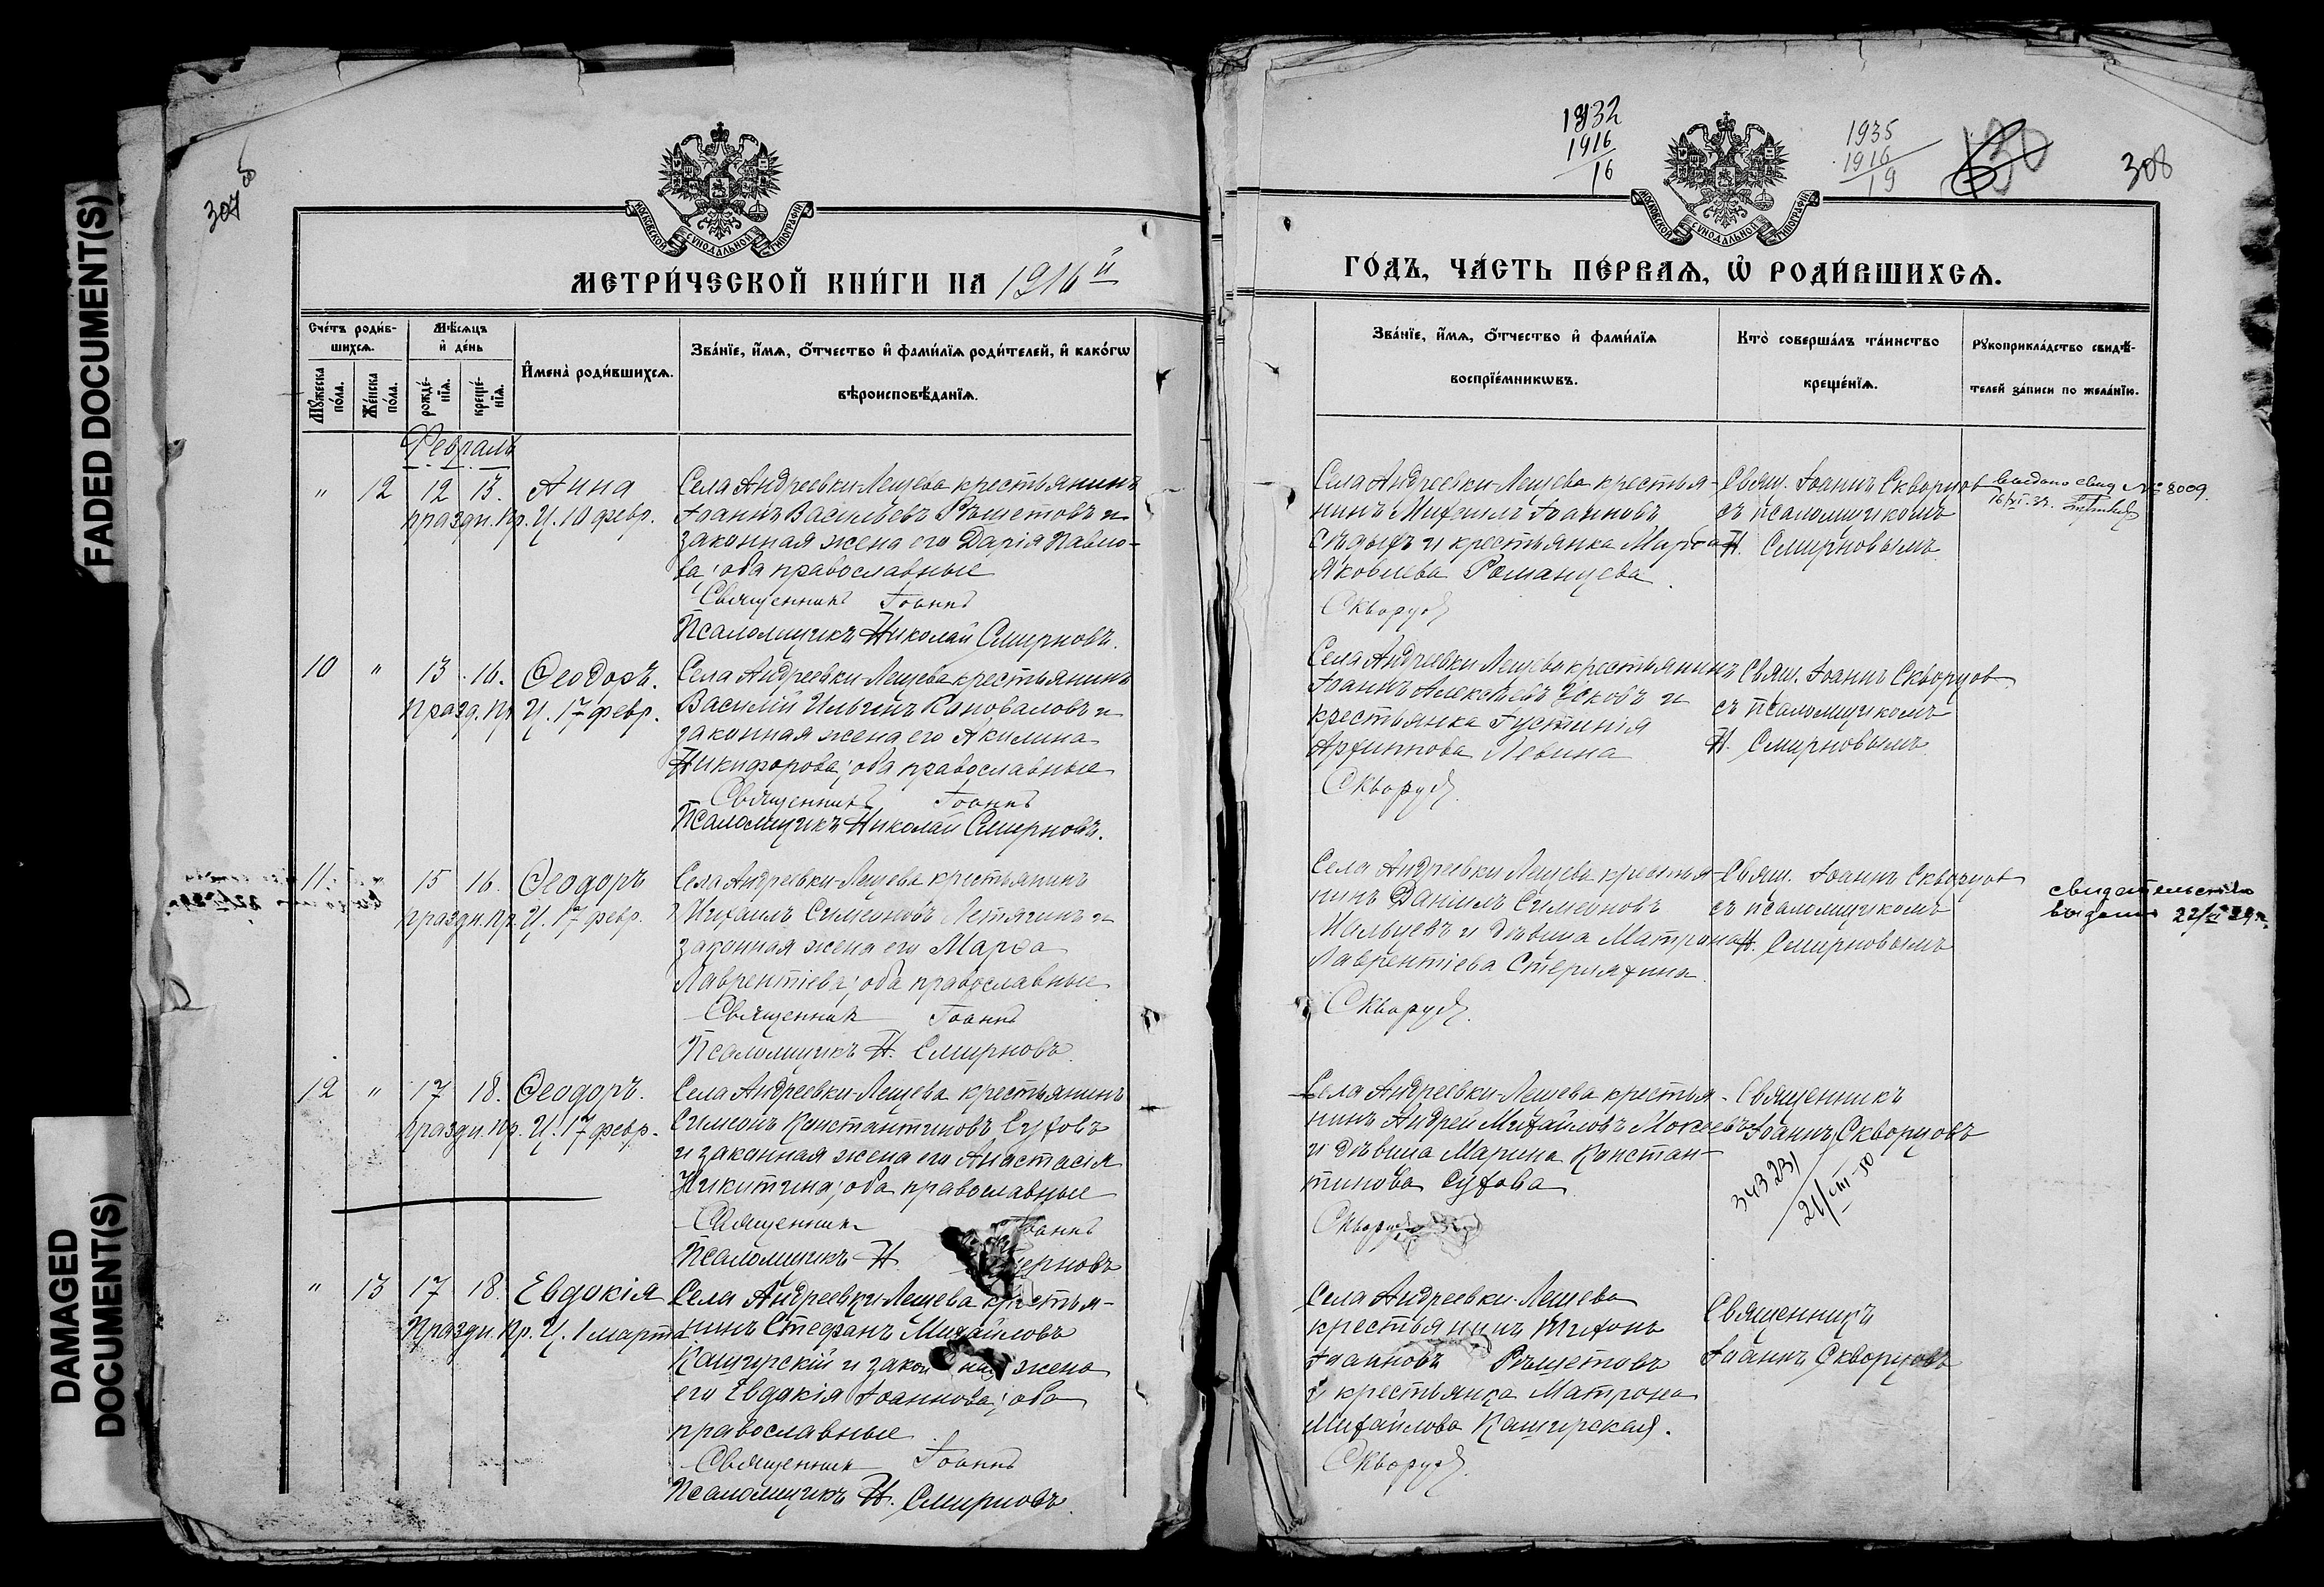 FADED DOCUMENT(S)
DAMAGED
DOCUMENT(S)
307
МОСКОВСКОЙ СУНОДАЛЬНОЙ ТИПОГРАФІИ
МЕТРИ́ЧЕСКОЙ КНИ́ГИ НА 1916й
Сче́тъ роди́в-
шихсѧ.
Мꙋ́жеска
по́ла.
Же́нска
по́ла.
Мѣ́сѧцъ
и҆ де́нь
рожде́-
нїѧ.
креще́-
нїѧ.
И҆мена̀ роди́вшихсѧ.
Зва́нїе, и҆́мѧ, ѻ҆́тчество и҆ фами́лїѧ роди́телей, и҆ како́гѡ
вѣроисповѣ́данїѧ.
Февраль
" 12 12 13. Анна
праздн. пр. Ц. 10 февр.
Села Андреевки-Лещева крестьянинъ
Іоаннъ Васильевъ Рѣшетовъ и
законная жена его Дарія Павло-
ва; оба православные
Священникъ Іоаннъ
Псаломщикъ Николай Смирновъ.
10 " 13 16. Ѳеодоръ.
празд. пр. Ц. 17 февр.
Села Андреевки-Лещева крестьянинъ
Василій Ильинъ Коноваловъ и
законная жена его Акилина
Никифорова; оба православные
Священникъ Іоаннъ
Псаломщикъ Николай Смирновъ.
11. " 15 16. Ѳеодоръ
праздн. пр. Ц. 17 февр.
Села Андреевки-Лещева крестьянинъ
Михаилъ Симеоновъ Летягинъ и
законная жена его Марѳа
Лаврентіева; оба православные
Священникъ Іоаннъ
Псаломщикъ Н. Смирновъ
12 " 17 18. Ѳеодоръ.
праздн. пр. Ц. 17 февр.
Села Андреевки-Лещева крестьянинъ
Симеонъ Константиновъ Суховъ
и законная жена его Анастасія
Никитина; оба православные
Священникъ Іоаннъ
Псаломщикъ Н. Смирновъ
" 13 17 18. Евдокія
Праздн. пр. Ц. 1 марта
Села Андреевки-Лещева крестья-
нинъ Стефанъ Михайловъ
Каширскій и законная жена
его Евдокія Іоаннова; оба
православные
Священникъ Іоаннъ
Псаломщикъ Н. Смирновъ.
1932
1916
16
1935
1916
19
308
МОСКОВСКОЙ СУНОДАЛЬНОЙ ТИПОГРАФІИ
ГО́ДЪ, ЧА́СТЬ ПЕ́РВАѦ, Ѡ҆ РОДИ́ВШИХСѦ.
Зва́нїе, и҆́мѧ, ѻ҆́тчество и҆ фами́лїѧ
воспрїе́мникѡвъ.
Кто̀ соверша́лъ та́инство
креще́нїѧ.
Рꙋкоприкла́дство свидѣ́-
телей за́писи по жела́нїю.
Села Андреевки Лещева крестья-
нинъ Михаилъ Іоанновъ
Сѣдыхъ и крестьянка Марѳа
Яковлева Романцева
Скворцовъ
Свящ. Іоаннъ Скворцов
съ псаломщикомъ
Н. Смирновымъ
Выдано свид. № 8009.
16/XI-32.
Села Андреевки Лещева крестьянинъ
Іоаннъ Алексѣевъ Усковъ и
крестьянка Іустинія
Архиппова Левина
Скворцовъ
Свящ. Іоаннъ Скворцов
съ псаломщикомъ
Н. Смирновымъ
Села Андреевки Лещева крестья-
нинъ Даніилъ Симеоновъ
Мальцевъ и дѣвица Матрона
Лаврентіева Стерляхина
Скворцовъ.
Свящ. Іоаннъ Скворцов
съ псаломщикомъ
Н. Смирновымъ
свидетельство
выдано 22/XI 29 г.
Села Андреевки-Лещева крестья-
нинъ Андрей Михайловъ Мокѣевъ
и дѣвица Марина Констан-
тинова Сухова
Скворцовъ
Священникъ
Іоаннъ Скворцовъ
343231
21/VIII-50
Села Андреевки-Лещева
крестьянинъ Тихонъ
Іоанновъ Рѣшетовъ
и крестьянка Матрона
Михайлова Каширская.
Скворцовъ.
Священникъ
Іоаннъ Скворцовъ